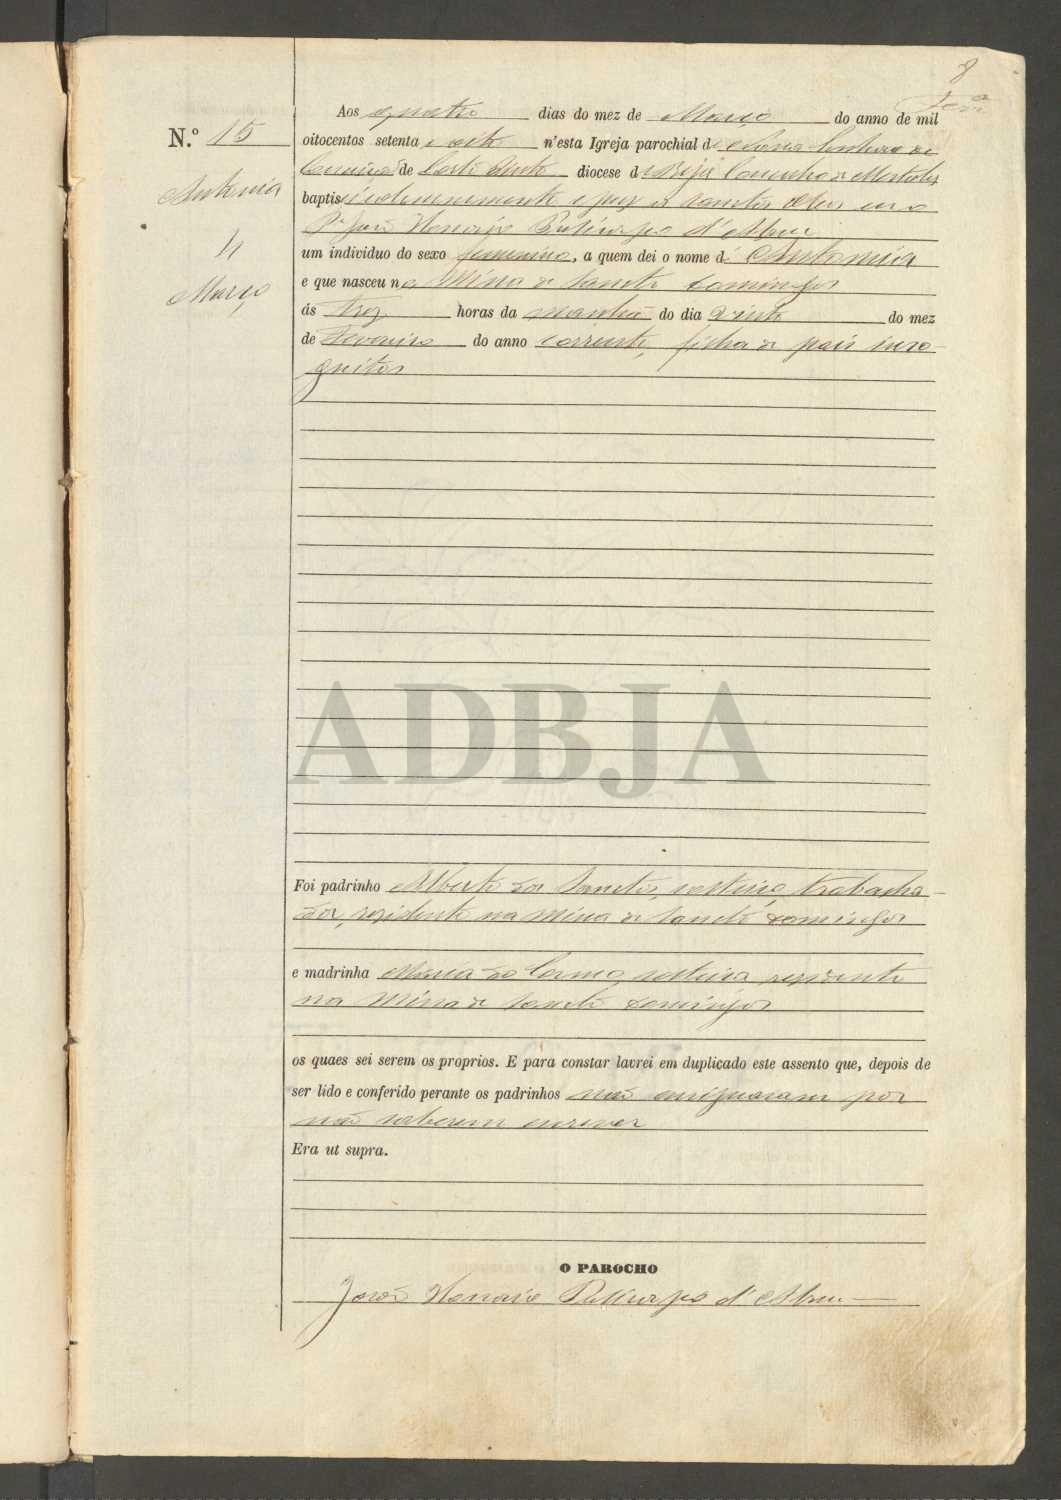 8
Aos quatro dias do mez de Março do anno de mil
N.º 15
oitocentos setenta e oito n'esta Igreja parochial de Nossa Senhora da
Conceição de Corte Pinto diocese de Beja Concelho de Mertola,
Antonia
baptisei solemnemente e puz os sanctos oleos eu o
P.e João Honorio Policarpo d'Abreu
4
um individuo do sexo femenino, a quem dei o nome de Antonia
e que nasceu na Mina de Sancto Domingos
Março
ás trez horas da manhã do dia vinte do mez
de Fevereiro do anno corrente, filha de pais inco-
gnitos
ADBJA
Foi padrinho Alberto dos Sanctos, solteiro, trabalha-
dor, rezidente na Mina de Sancto Domingos
e madrinha Maria do Carmo, solteira rezidente
na Mina de Sancto Domingos
os quaes sei serem os proprios. E para constar lavrei em duplicado este assento que, depois de
ser lido e conferido perante os padrinhos não assignaram por
não saberem escrever
Era ut supra.
O PAROCHO
João Honorio Policarpo d'Abreu